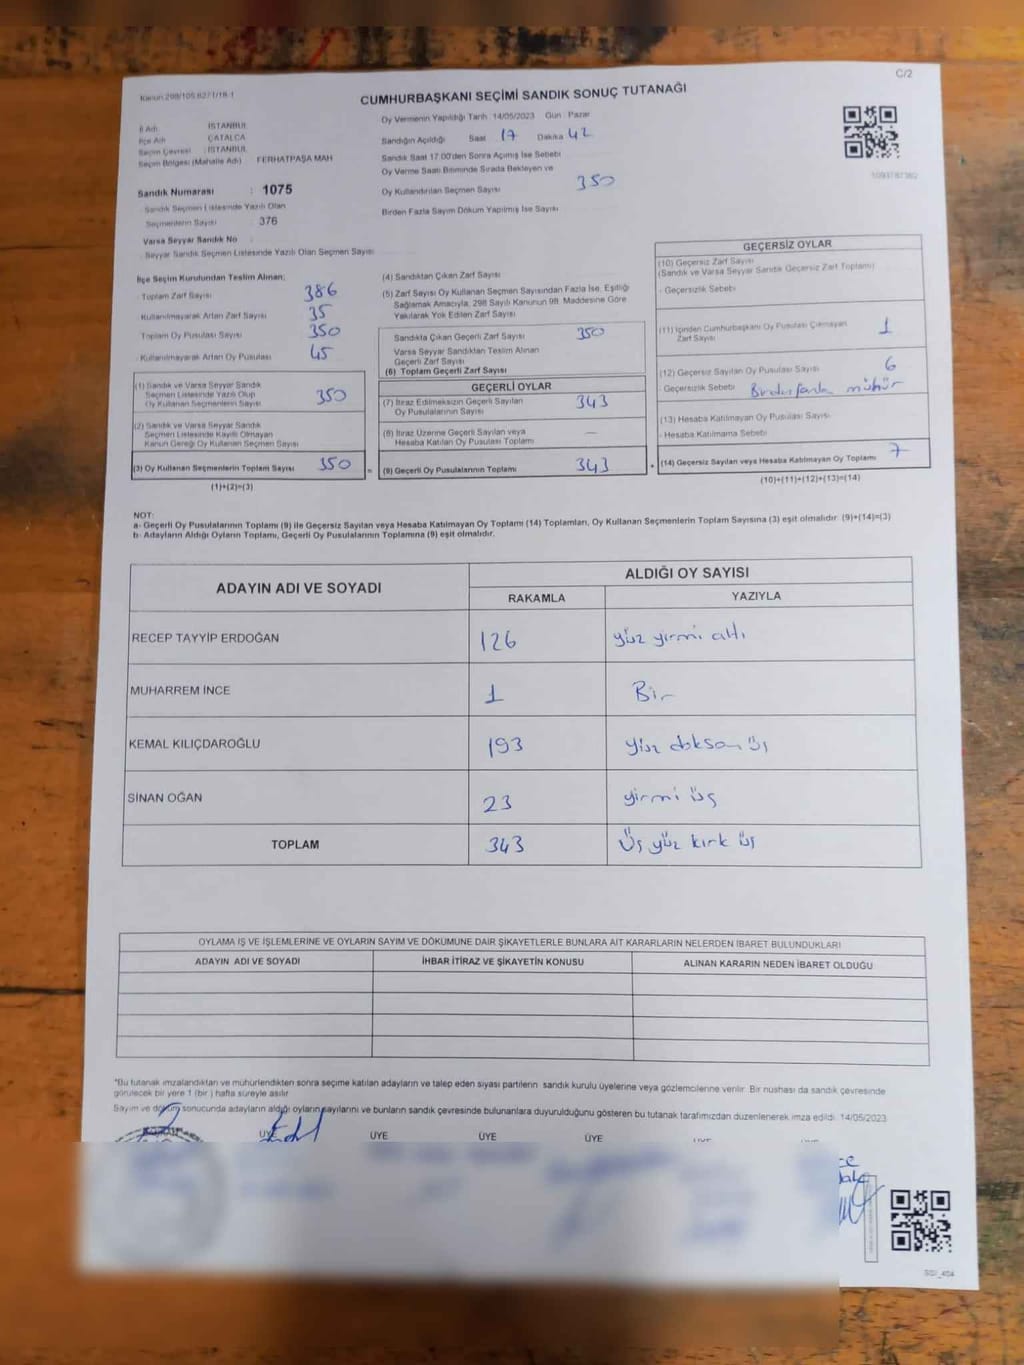 C/2
Kanun 298/105,6271/18-1
CUMHURBAŞKANI SEÇİMİ SANDIK SONUÇ TUTANAĞI
İl Adı : İSTANBUL
İlçe Adı : ÇATALCA
Seçim Çevresi : İSTANBUL
Seçim Bölgesi (Mahalle Adı) FERHATPAŞA MAH
Sandık Numarası : 1075
Sandık Seçmen Listesinde Yazılı Olan
Seçmenlerin Sayısı 376
Varsa Seyyar Sandık No
Seyyar Sandık Seçmen Listesinde Yazılı Olan Seçmen Sayısı
Oy Vermenin Yapıldığı Tarih 14/05/2023 Gün Pazar
Sandığın Açıldığı Saat 17 Dakika 42
Sandık Saat 17.00'den Sonra Açılmış İse Sebebi
Oy Verme Saati Bitiminde Sırada Bekleyen ve
Oy Kullandırılan Seçmen Sayısı 350
Birden Fazla Sayım Döküm Yapılmış İse Sayısı
1093787382
İlçe Seçim Kurulundan Teslim Alınan;
Toplam Zarf Sayısı 386
Kullanılmayarak Artan Zarf Sayısı 35
Toplam Oy Pusulası Sayısı 350
Kullanılmayarak Artan Oy Pusulası 45
(1) Sandık ve Varsa Seyyar Sandık
Seçmen Listesinde Yazılı Olup
Oy Kullanan Seçmenlerin Sayısı 350
(2) Sandık ve Varsa Seyyar Sandık
Seçmen Listesinde Kayıtlı Olmayan
Kanun Gereği Oy Kullanan Seçmen Sayısı
(3) Oy Kullanan Seçmenlerin Toplam Sayısı 350
(1)+(2)=(3)
(4) Sandıktan Çıkan Zarf Sayısı
(5) Zarf Sayısı Oy Kullanan Seçmen Sayısından Fazla İse, Eşitliği
Sağlamak Amacıyla, 298 Sayılı Kanunun 98. Maddesine Göre
Yakılarak Yok Edilen Zarf Sayısı
Sandıkta Çıkan Geçerli Zarf Sayısı 350
Varsa Seyyar Sandıktan Teslim Alınan
Geçerli Zarf Sayısı
(6) Toplam Geçerli Zarf Sayısı
GEÇERLİ OYLAR
(7) İtiraz Edilmeksizin Geçerli Sayılan
Oy Pusulalarının Sayısı 343
(8) İtiraz Üzerine Geçerli Sayılan veya
Hesaba Katılan Oy Pusulası Toplamı —
= (9) Geçerli Oy Pusulalarının Toplamı 343
GEÇERSİZ OYLAR
(10) Geçersiz Zarf Sayısı
(Sandık ve Varsa Seyyar Sandık Geçersiz Zarf Toplamı)
- Geçersizlik Sebebi
(11) İçinden Cumhurbaşkanı Oy Pusulası Çıkmayan
Zarf Sayısı 1
(12) Geçersiz Sayılan Oy Pusulası Sayısı 6
Geçersizlik Sebebi Birden fazla mühür
(13) Hesaba Katılmayan Oy Pusulası Sayısı
- Hesaba Katılmama Sebebi
+ (14) Geçersiz Sayılan veya Hesaba Katılmayan Oy Toplamı 7
(10)+(11)+(12)+(13)=(14)
NOT:
a- Geçerli Oy Pusulalarının Toplamı (9) ile Geçersiz Sayılan veya Hesaba Katılmayan Oy Toplamı (14) Toplamları, Oy Kullanan Seçmenlerin Toplam Sayısına (3) eşit olmalıdır. (9)+(14)=(3)
b- Adayların Aldığı Oyların Toplamı, Geçerli Oy Pusulalarının Toplamına (9) eşit olmalıdır.
ADAYIN ADI VE SOYADI
ALDIĞI OY SAYISI
RAKAMLA YAZIYLA
RECEP TAYYİP ERDOĞAN 126 yüz yirmi altı
MUHARREM İNCE 1 Bir
KEMAL KILIÇDAROĞLU 193 yüz doksan üç
SİNAN OĞAN 23 yirmi üç
TOPLAM 343 Üç yüz kırk üç
OYLAMA İŞ VE İŞLEMLERİNE VE OYLARIN SAYIM VE DÖKÜMÜNE DAİR ŞİKAYETLERLE BUNLARA AİT KARARLARIN NELERDEN İBARET BULUNDUKLARI
ADAYIN ADI VE SOYADI İHBAR İTİRAZ VE ŞİKAYETİN KONUSU ALINAN KARARIN NEDEN İBARET OLDUĞU
*Bu tutanak imzalandıktan ve mühürlendikten sonra seçime katılan adayların ve talep eden siyasi partilerin sandık kurulu üyelerine veya gözlemcilerine verilir. Bir nüshası da sandık çevresinde
görülecek bir yere 1 (bir) hafta süreyle asılır
Sayım ve döküm sonucunda adayların aldığı oyların sayılarını ve bunların sandık çevresinde bulunanlara duyurulduğunu gösteren bu tutanak tarafımızdan düzenlenerek imza edildi. 14/05/2023
ÜYE ÜYE ÜYE ÜYE